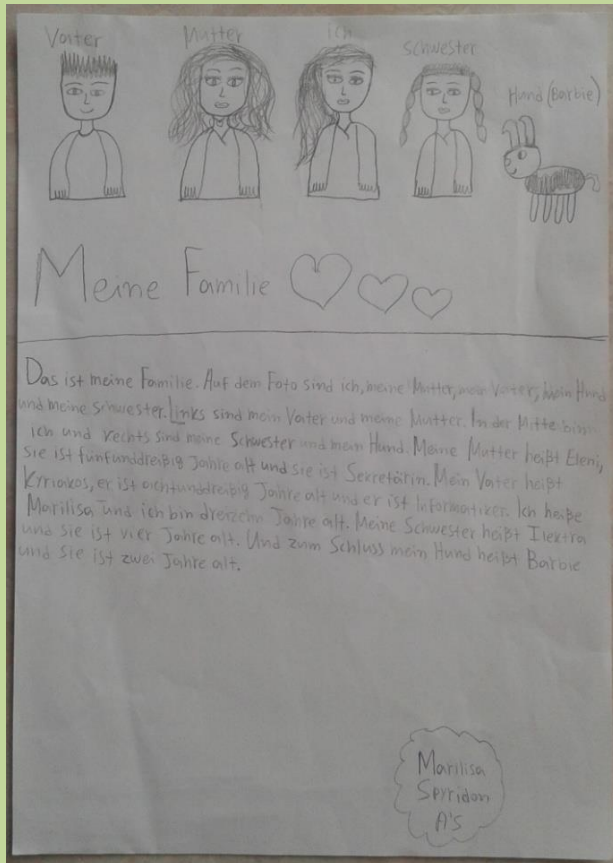 Vater
Mutter
ich
Schwester
Hund (Barbie)
Meine Familie
Das ist meine Familie. Auf dem Foto sind ich, meine Mutter, mein Vater, mein Hund
und meine Schwester. Links sind mein Vater und meine Mutter. In der Mitte bin
ich und rechts sind meine Schwester und mein Hund. Meine Mutter heißt Eleni,
sie ist fünfunddreißig Jahre alt und sie ist Sekretärin. Mein Vater heißt
Kyriakos, er ist achtunddreißig Jahre alt und er ist Informatiker. Ich heiße
Marilisa und ich bin dreizehn Jahre alt. Meine Schwester heißt Ilektra
und sie ist vier Jahre alt. Und zum Schluss mein Hund heißt Barbie
und sie ist zwei Jahre alt.
Marilisa
Spyridon
A'5